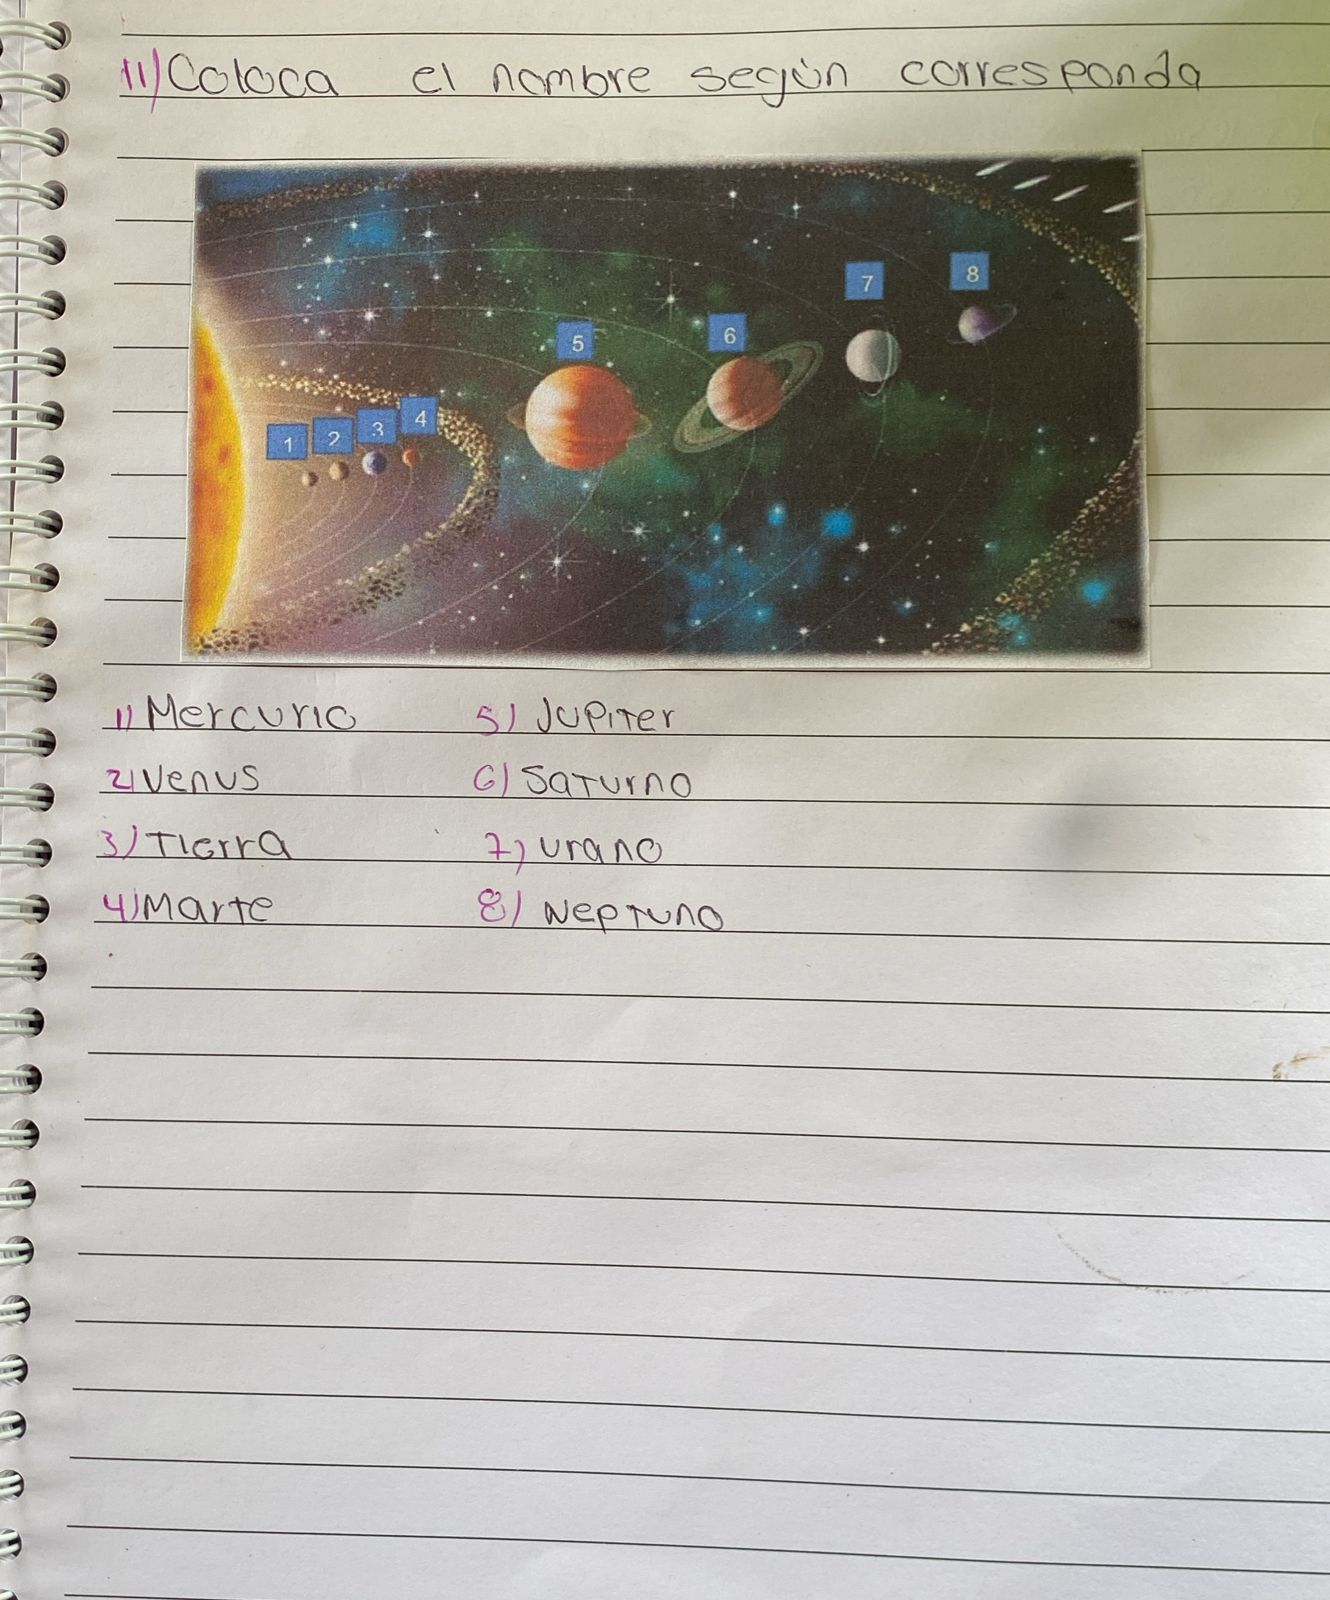 11) Coloca el nombre según corresponda
7
8
5
6
1
2
3
4
1) Mercurio
2) Venus
3) Tierra
4) Marte
5) Jupiter
6) Saturno
7) urano
8) Neptuno